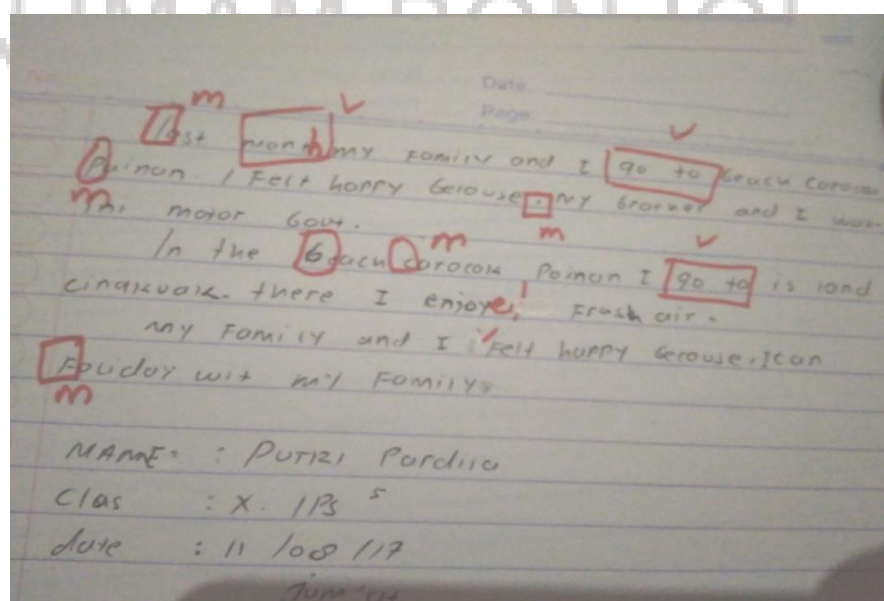 IMAM BONJOL
No.
Date
Page
m v
last month my Family and I go to beach corocok v
Painan. I Felt happy becouse. my brother and I wan
m m
motor boat.
m v
In the beach corocok Painan I go to is land
cinakuak. there I enjoye, Frash air.
my Family and I Felt happy becouse. I can
Foliday wit my Family.
m
NAME : PUTRI Pardila
Clas : X. IPS 5
date : 11 /08 /17
jum'at